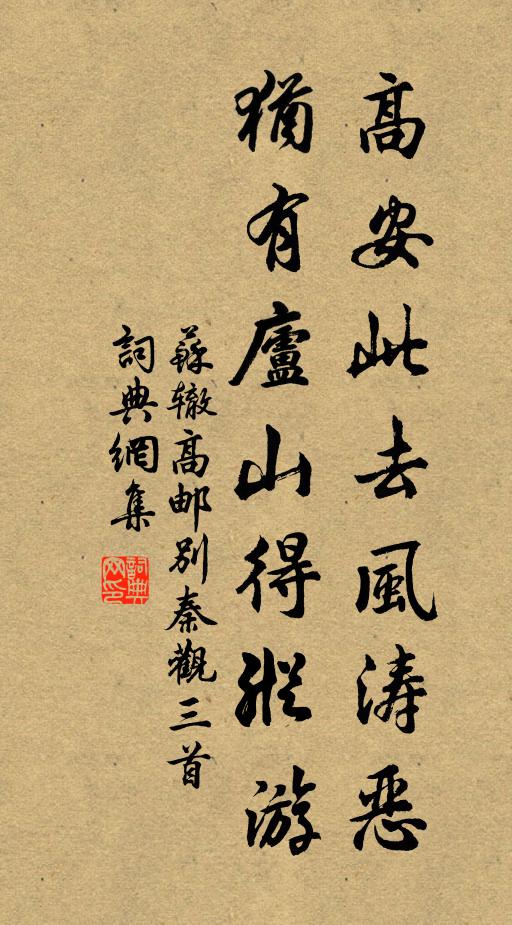 高安此去風涛惡
猶有廬山得縱游
蘇辙高邮別秦觀三首
詞典網集
詞典網印